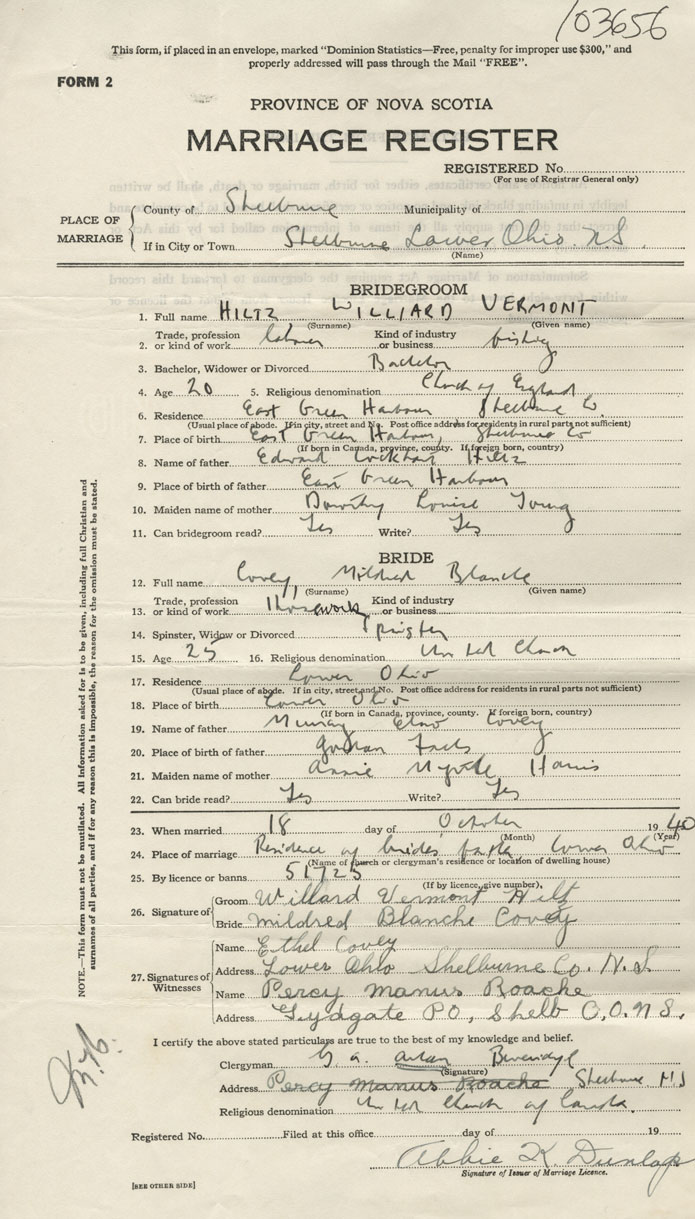 103656
This form, if placed in an envelope, marked "Dominion Statistics—Free, penalty for improper use $300," and
properly addressed will pass through the Mail "FREE".
FORM 2
PROVINCE OF NOVA SCOTIA
MARRIAGE REGISTER
REGISTERED No.
(For use of Registrar General only)
PLACE OF MARRIAGE
County of Shelburne Municipality of
If in City or Town Shelburne Lower Ohio. N.S.
(Name)
BRIDEGROOM
1. Full name HILTZ WILLIARD VERMONT
(Surname) (Given name)
2. Trade, profession or kind of work labour Kind of industry or business fishing
3. Bachelor, Widower or Divorced Bachelor
4. Age 20 5. Religious denomination Church of England
6. Residence East Green Harbour Shelburne Co.
(Usual place of abode. If in city, street and No. Post office address for residents in rural parts not sufficient)
7. Place of birth East Green Harbour, Shelburne Co
(If born in Canada, province, county. If foreign, country)
8. Name of father Edward Lockhart Hiltz
9. Place of birth of father East Green Harbour
10. Maiden name of mother Dorothy Louise Young
11. Can bridegroom read? Yes Write? Yes
BRIDE
12. Full name Covey, Mildred Blanche
(Surname) (Given name)
13. Trade, profession or kind of work Housework Kind of industry or business
14. Spinster, Widow or Divorced Spinster
15. Age 25 16. Religious denomination United Church
17. Residence Lower Ohio
(Usual place of abode. If in city, street and No. Post office address for residents in rural parts not sufficient)
18. Place of birth Lower Ohio
(If born in Canada, province, county. If foreign, country)
19. Name of father Murray Covey
20. Place of birth of father
21. Maiden name of mother Annie Myrtle Harris
22. Can bride read? Yes Write? Yes
23. When married 18 day of October 1940
(Month) (Year)
24. Place of marriage Residence of brides Lower Ohio
(Name of church or clergyman's residence or location of dwelling house)
25. By licence or banns 51725
(If by licence, give number)
26. Signature of
Groom Willard Vermont Hiltz
Bride Mildred Blanche Covey
27. Signatures of Witnesses
Name Ethel Covey
Address Lower Ohio Shelburne Co. N.S
Name Percy Manus Roache
Address PO, Shelb CO. N.S.
I certify the above stated particulars are true to the best of my knowledge and belief.
Clergyman G. A.
(Signature)
Address Percy Manus Roache Shelburne N.S
Religious denomination United Church of Canada.
Registered No. Filed at this office day of 19
Abbie K. Dunlap
Signature of Issuer of Marriage Licence.
[SEE OTHER SIDE]
NOTE.—This form must not be mutilated. All information asked for is to be given, including full Christian and
surnames of all parties, and if for any reason this is impossible, the reason for the omission must be stated.